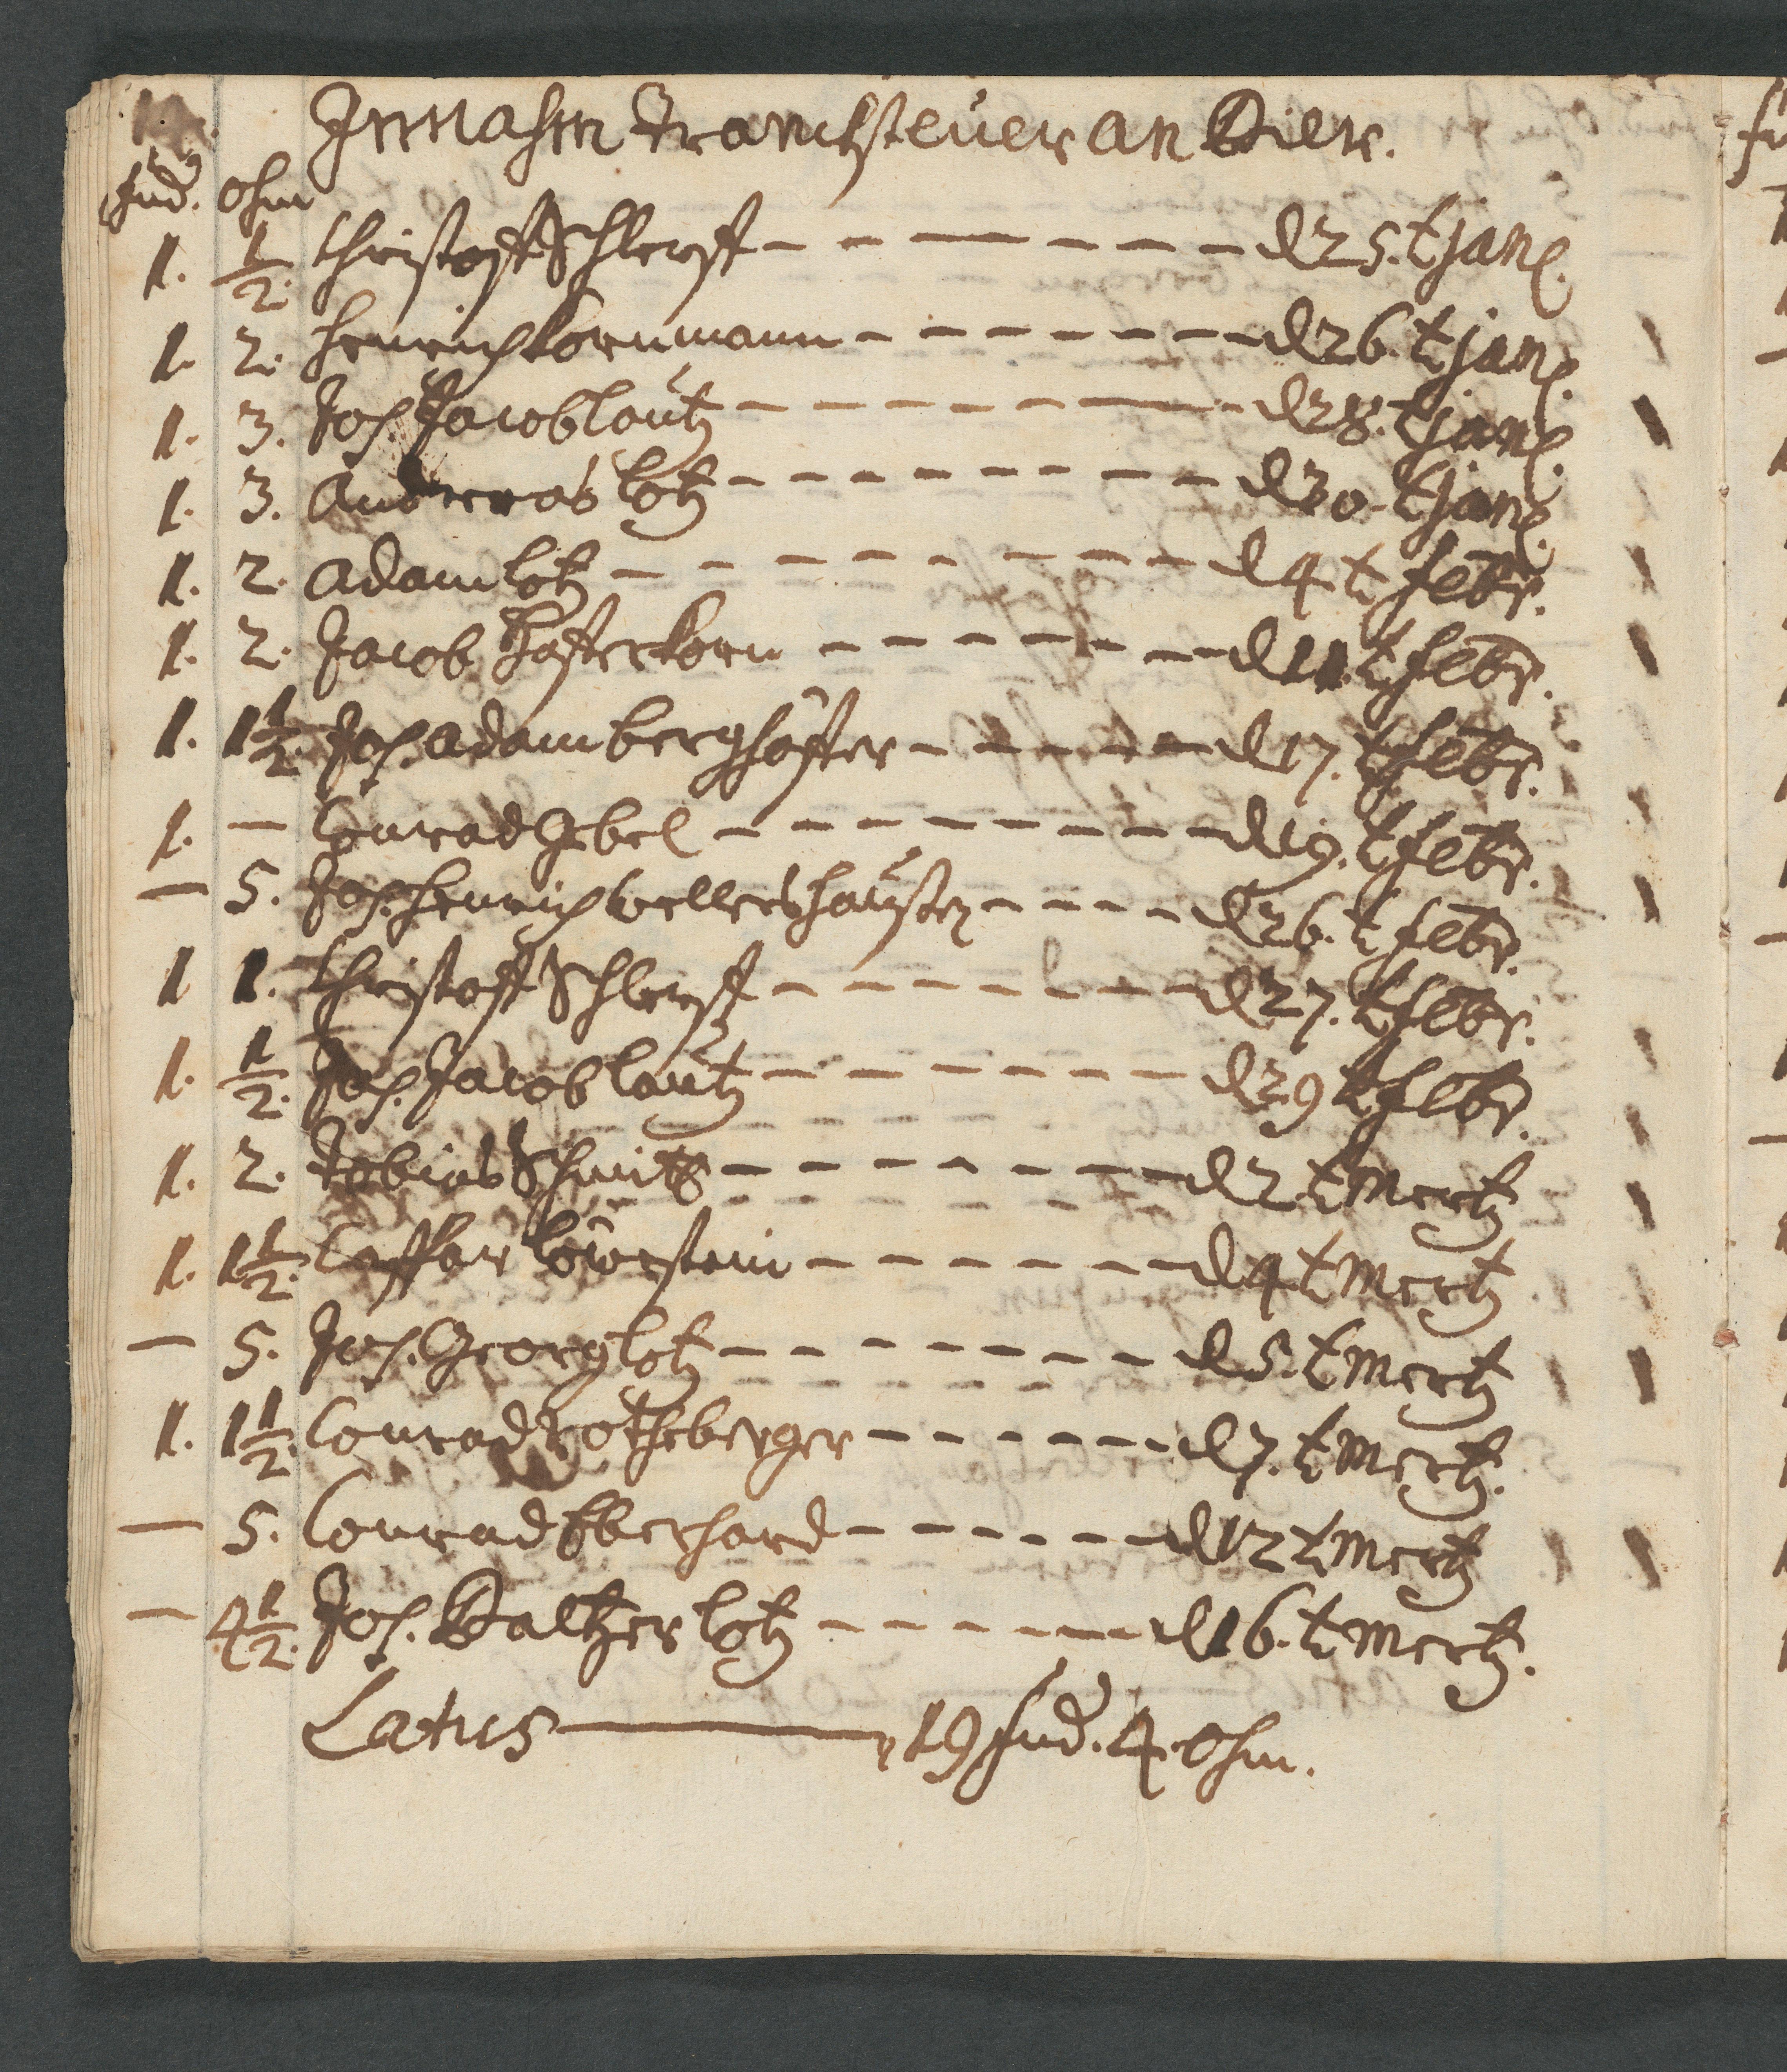 Innahm Tranchsteuer an Bier.
fud. ohm
1. 1/2. Christoff Schlerff - - - - - - - d 25. t Jan.
1. 2. Henrich Kornmann - - - - - - - d 26. t Jan.
1. 3. Joh. Jacob Lautz - - - - - - - d 28. t Jan.
1. 3. Andreas Lotz - - - - - - - d 30. t Jan.
1. 2. Adam Lotz - - - - - - - d 4 t Febr.
1. 2. Jacob Hafterkorn - - - - - - d 11. t Febr.
1. 1 1/2. Joh. Adam Berghöffer - - - - - d 17. t Febr.
1. — Conrad Gebel - - - - - - - d 19. t Febr.
— 5. Joh. Henrich Wellershausen - - - - d 26. t Febr.
1 1. Christoff Schlerff - - - - - - d 27. t Febr.
1. 1/2. Joh. Jacob Lautz - - - - - - - d 29 t Febr.
1. 2. Tobias Schmitt - - - - - - - d 2 t Mertz
1. 1 1/2. Casper Löwestein - - - - - - d 4 t Mertz
— 5. Joh. Georg Lotz - - - - - - - d 5. t Mertz
1. 1 1/2. Conrad Rotheberger - - - - - - d 7. t Mertz.
— 5. Conrad Eberhard - - - - - - d 12 t Mertz
— 4 1/2. Joh. Baltzer Lotz - - - - - - d 16. t Mertz.
Latus ——— 19 fud. 4. Ohm.